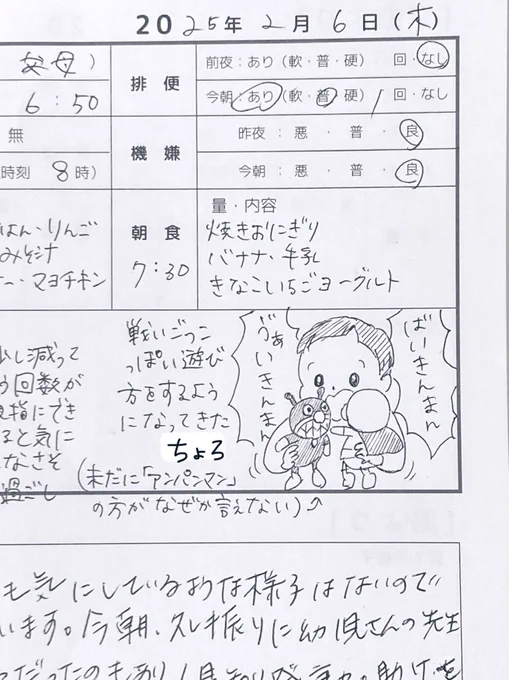 2025年2月6日(木)
父母)
排便
前夜:あり(軟・普・硬) 回・なし
6:50
今朝:あり(軟・普・硬) 1回・なし
無
機嫌
昨夜:悪・普・良
時刻 8時)
今朝:悪・普・良
はん・りんご
みそ汁
ー・マヨチキン
朝食
7:30
量・内容
焼きおにぎり
バナナ・牛乳
きなこいちごヨーグルト
少し減って
う回数が
親指にでき
ると気に
なさそ
過ごし
戦いごっこ
っぽい遊び
方をするよう
になってきた
ちょろ
(未だに「アンパンマン」
の方がなぜか言えない)
ばいきんまん
も気にしているような様子はないので
います。今朝、久し振りに幼児さんの先生
だったのもあり